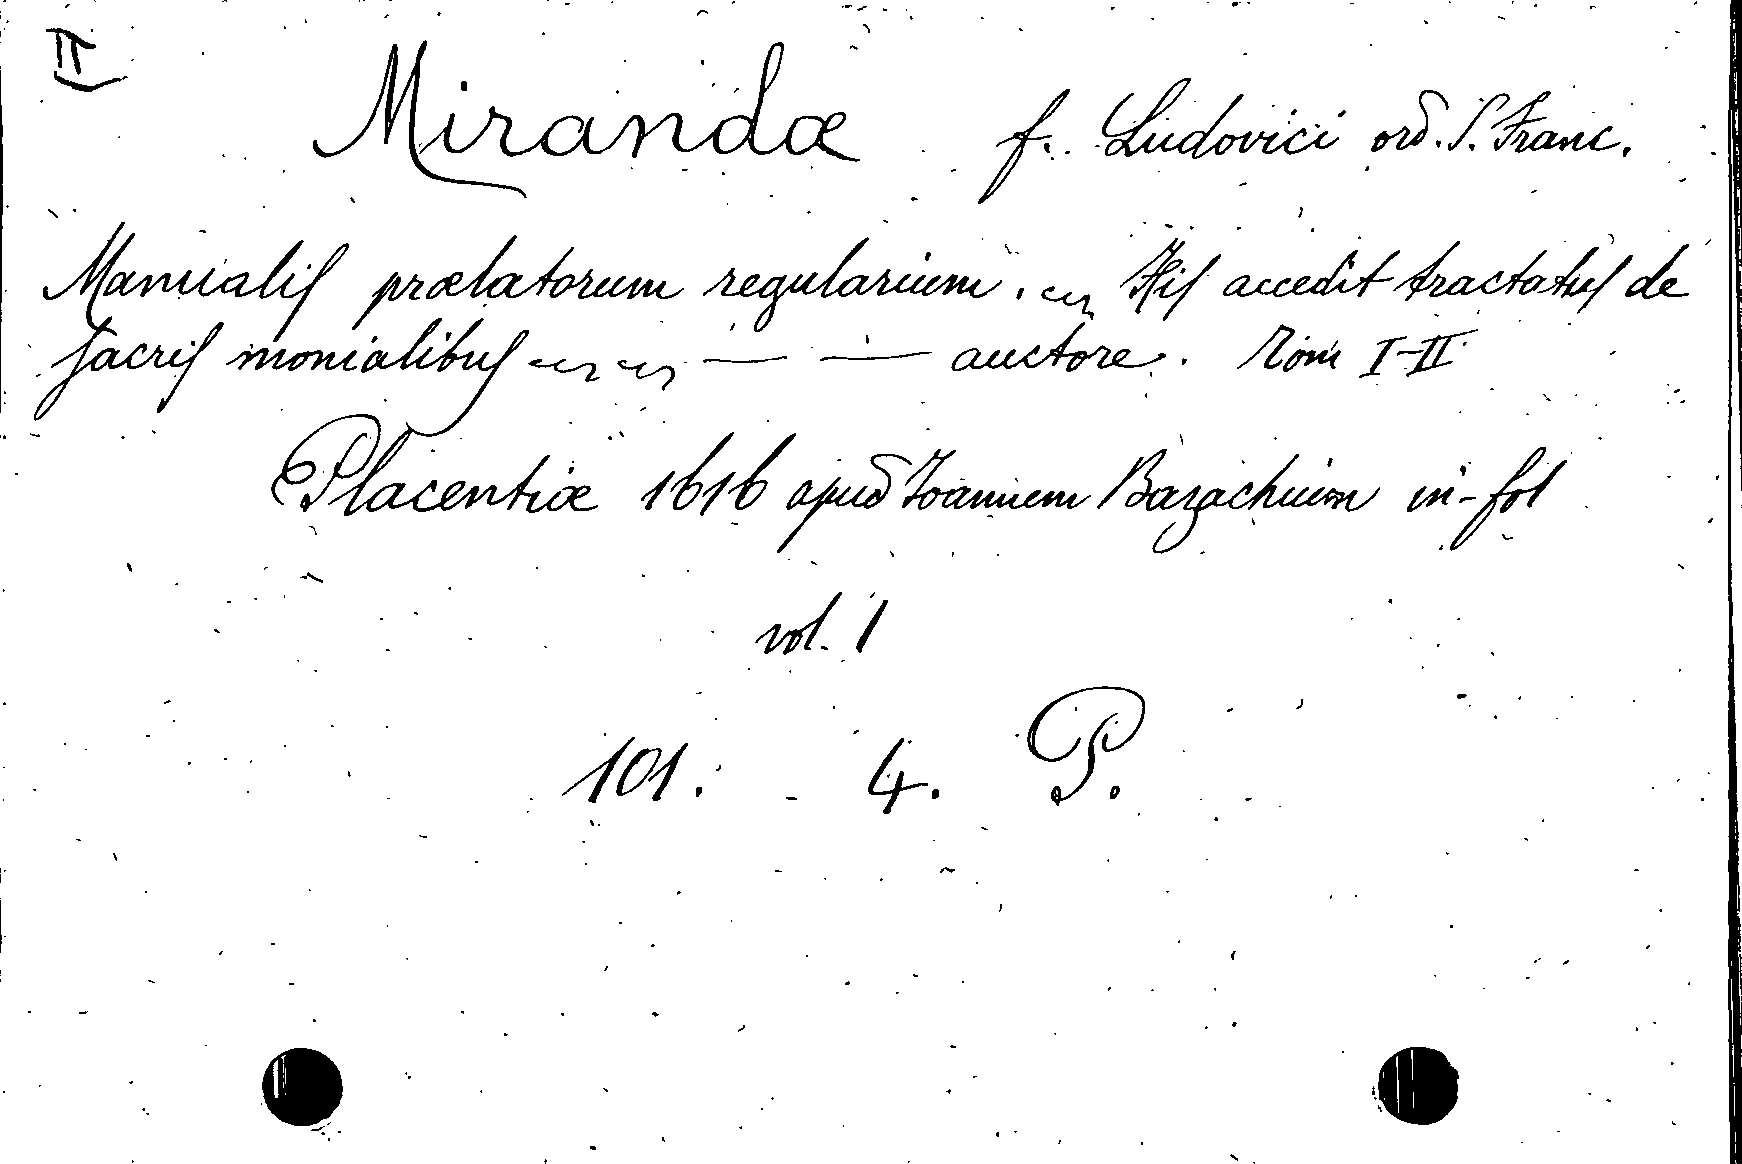 II
Mirandæ f. Ludovici ord. S. Franc.
Manualis prælatorum regularium. His accedit tractatus de
sacris monialibus — — auctore. Tom I-II
Placentiæ 1616 apud Joannem Bazachium in-fol
vol. 1
101. 4. P.